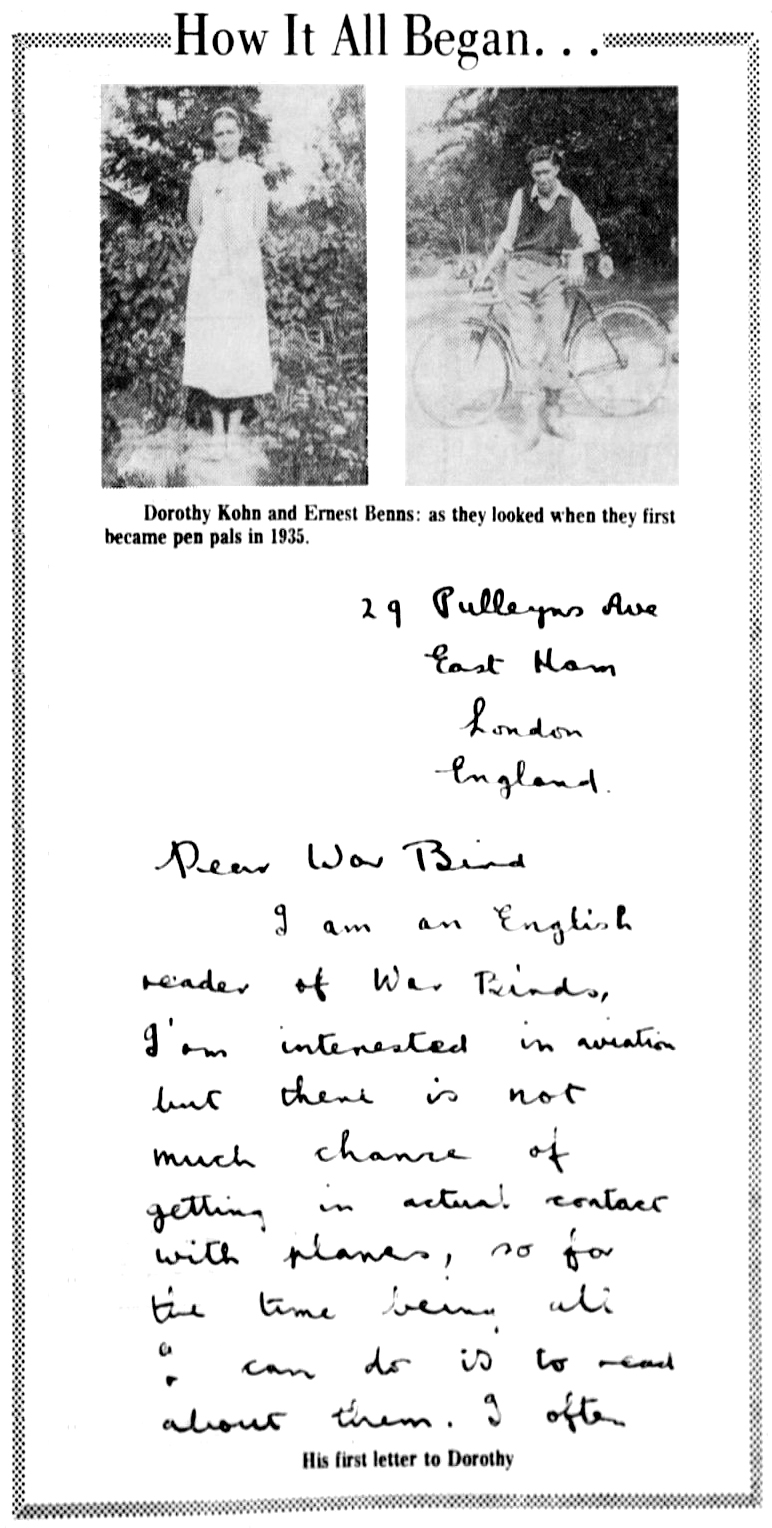 How It All Began. . .
Dorothy Kohn and Ernest Benns: as they looked when they first
became pen pals in 1935.
29 Pulleyns Ave
East Ham
London
England.
Dear War Bird
I am an English
reader of War Birds,
I'am interested in aviation
but there is not
much chance of
getting in actual contact
with planes, so for
the time being all
I can do is to read
about them. I often
His first letter to Dorothy